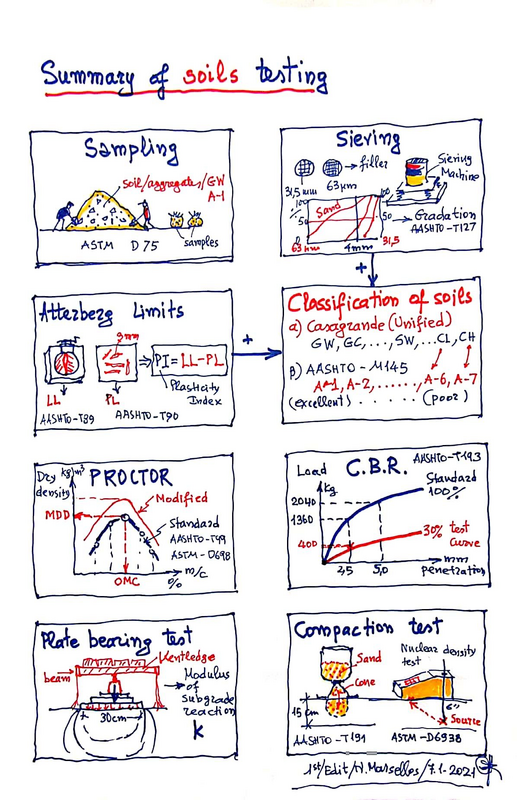 Summary of soils testing
Sampling
soil/aggregates/GW
A-1
samples
ASTM D 75
Sieving
31,5 mm
63µm
filler
Sieving
Machine
100
%
50
Sand
100
50
Gradation
AASHTO-T127
63µm
4mm
31,5
+
Atterberg Limits
3mm
PI=LL-PL
Plasticity
Index
LL
PL
AASHTO-T89
AASHTO-T90
+
Classification of soils
a) Casagrande (Unified)
GW, GC, ..., SW, ...CL, CH
B) AASHTO-M145
A-1, A-2, ......, A-6, A-7
(excellent) ..... (poor)
PROCTOR
Dry kg/m³
density
Modified
MDD
Standard
AASHTO-T49
ASTM-D698
m/c
%
OMC
C.B.R.
AASHTO-T193
Load
kg
Standard
100%
2040
1360
400
30% test
curve
mm
penetration
2,5
5,0
Plate bearing test
Kentledge
beam
Modulus
of
Subgrade
reaction
K
30cm
Compaction test
Sand
cone
Nuclear density
test
15cm
6"
Source
AASHTO-T191
ASTM-D6938
1st/Edit/N.Marselos/7.1-2021